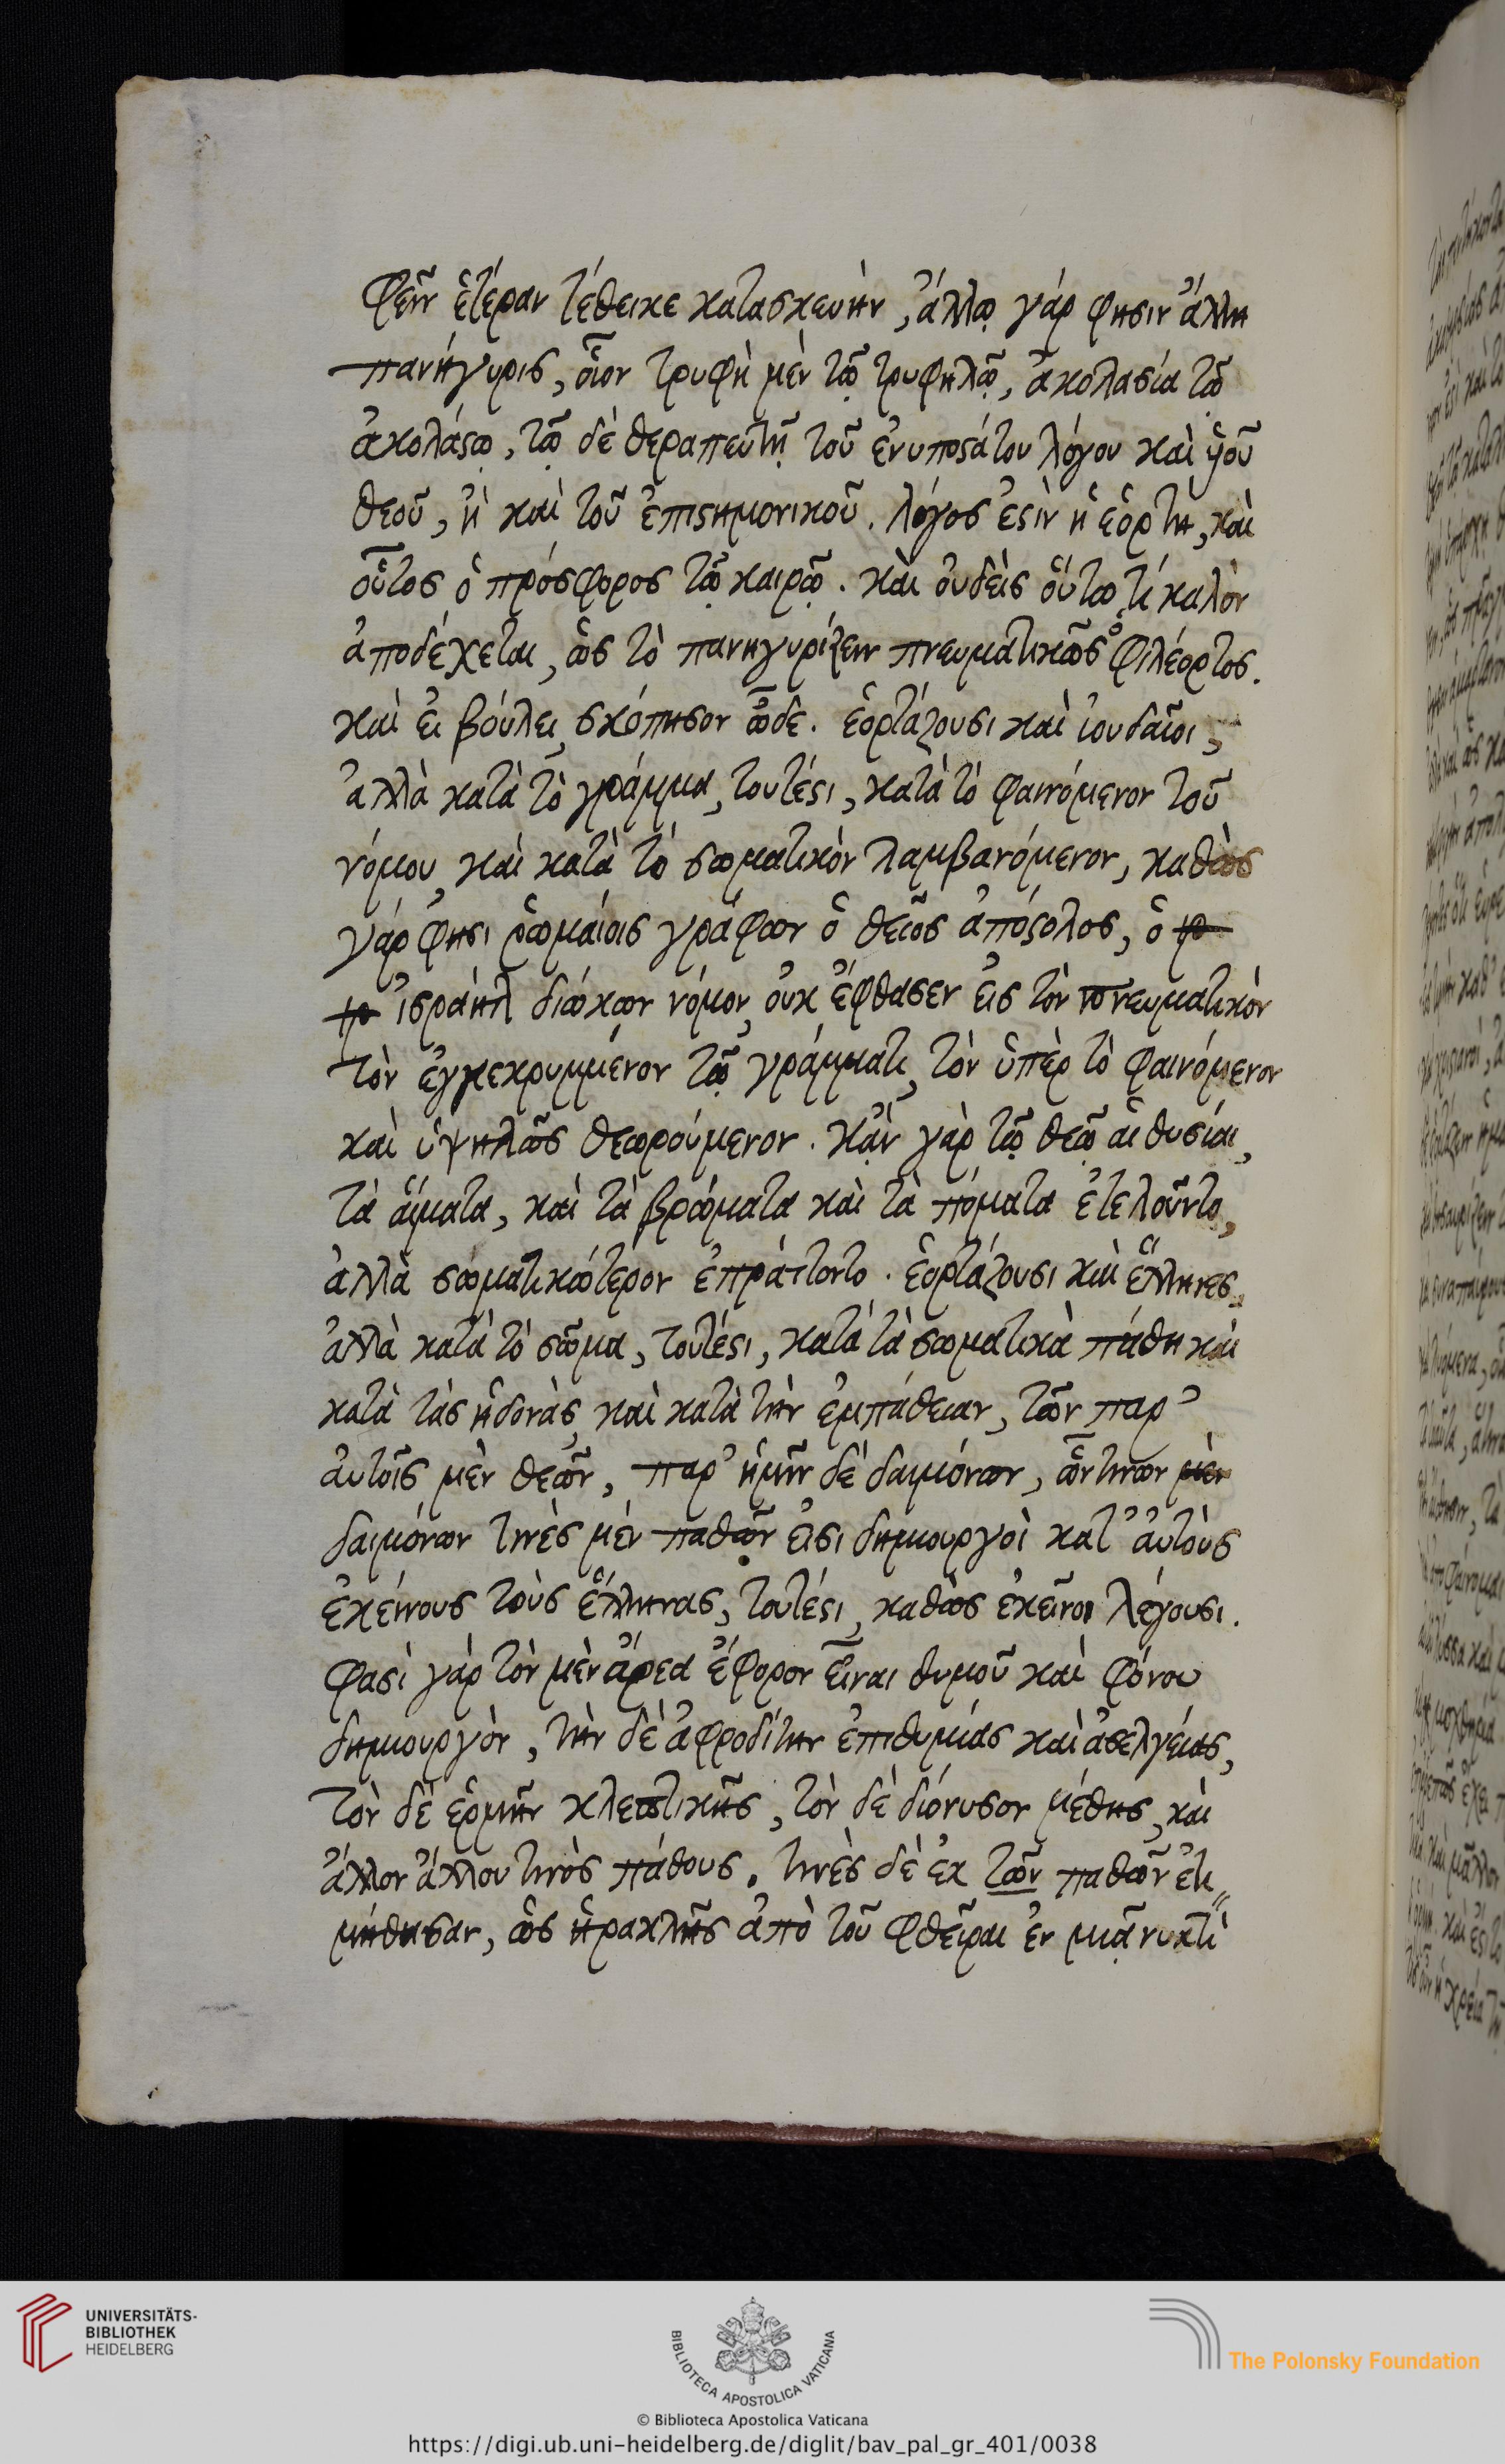 φεῖν ἑτέραν τέθεικε κατασκευὴν, ἄλλῳ γάρ φησιν ἄλλη
πανήγυρις, οἷον τρυφὴ μὲν τῷ τρυφηλῷ, ἀκολασία τῷ
ἀκολάϛῳ, τῷ δὲ θεραπευτῇ τοῦ ἐνυποϛάτου λόγου καὶ ὑοῦ
θεοῦ, ἢ καὶ τοῦ ἐπιϛημονικοῦ. λόγος ἐϛὶν ἡ ἑορτὴ, καὶ
οὗτος ὁ πρόσφορος τῷ καιρῷ. καὶ οὐδεὶς οὕτω τί καλὸν
ἀποδέχεται, ὡς τὸ πανηγυρίζειν πνευματικῶς ὁ φιλέορτος.
καὶ εἰ βούλει, σκόπησον ὧδε. ἑορτάζουσι καὶ ἰουδαῖοι,
ἀλλὰ κατὰ τὸ γράμμα, τουτέϛι, κατὰ τὸ φαινόμενον τοῦ
νόμου, καὶ κατὰ τὸ σωματικὸν λαμβανόμενον, καθὼς
γάρ φησι ῥωμαίοις γράφων ὁ θεῖος ἀπόϛολος, ὁ
ἰσραὴλ διώκων νόμον, οὐκ ἔφθασεν εἰς τὸν πνευματικὸν
τὸν ἐγκεκρυμμένον τῷ γράμματι, τὸν ὑπὲρ τὸ φαινόμενον
καὶ ὑψηλῶς θεωρούμενον. κᾂν γὰρ τῷ θεῷ αἱ θυσίαι,
τὰ αἵματα, καὶ τὰ βρώματα καὶ τὰ πόματα ἐτελοῦντο,
ἀλλὰ σωματικώτερον ἐπράττοντο. ἑορτάζουσι καὶ ἕλληνες,
ἀλλὰ κατὰ τὸ σῶμα, τουτέϛι, κατὰ τὰ σωματικὰ πάθη καὶ
κατὰ τὰς ἡδονὰς, καὶ κατὰ τὴν ἐμπάθειαν, τῶν παρ'
αὐτοῖς μὲν θεῶν, παρ' ἡμῖν δὲ δαιμόνων, ὧν τινων μὲν
δαιμόνων τινὲς μὲν παθῶν εἰσι δημιουργοὶ κατ' αὐτοὺς
ἐκείνους τοὺς ἕλληνας, τουτέϛι, καθὼς ἐκεῖνοι λέγουσι.
φασὶ γὰρ τὸν μὲν ἄρεα ἔφορον εἶναι θυμοῦ καὶ φόνου
δημιουργὸν, τὴν δὲ ἀφροδίτην ἐπιθυμίας καὶ ἀσελγείας,
τὸν δὲ ἑρμῆν κλεπτικῆς, τὸν δὲ διόνυσον μέθης, καὶ
ἄλλον ἄλλου τινὸς πάθους. τινὲς δὲ ἐκ τῶν παθῶν ἐτι
μήθησαν, ὡς ἡρακλῆς ἀπὸ τοῦ φθεῖραι ἐν μιᾷ νυκτὶ
UNIVERSITÄTS-
BIBLIOTHEK
HEIDELBERG
BIBLIOTECA APOSTOLICA VATICANA
The Polonsky Foundation
© Biblioteca Apostolica Vaticana
https://digi.ub.uni-heidelberg.de/diglit/bav_pal_gr_401/0038